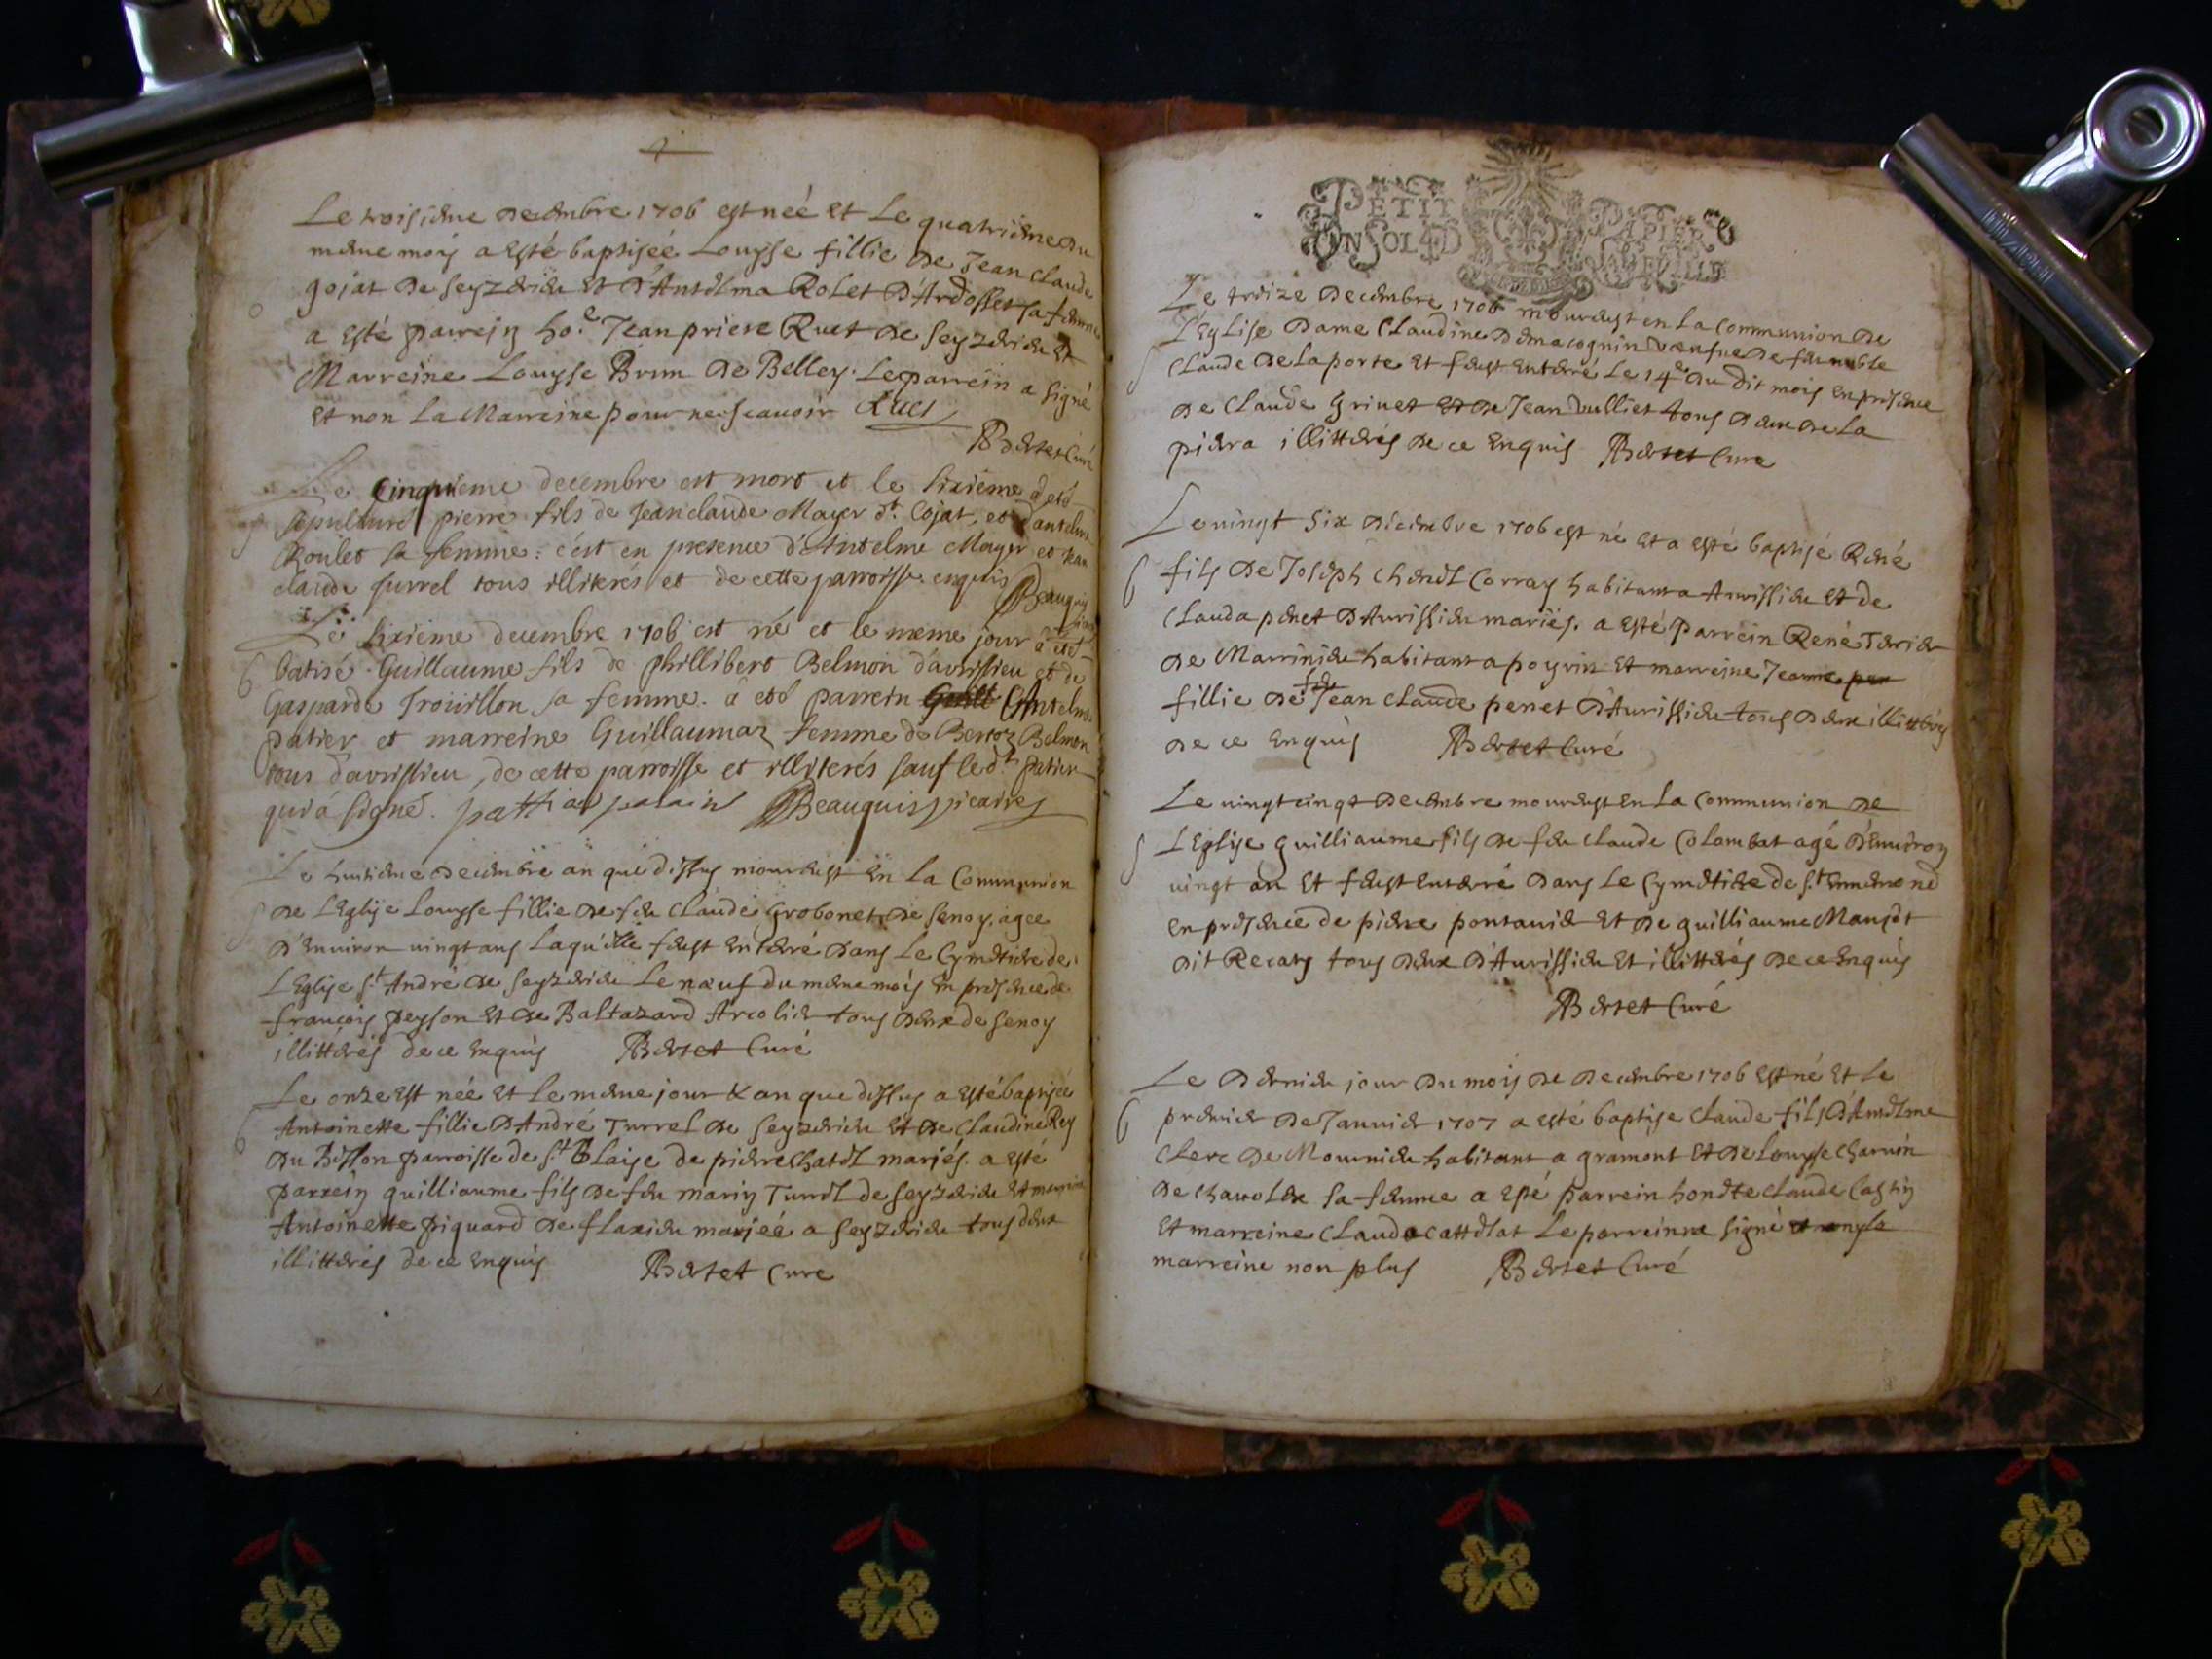 Le troisieme decembre 1706 est neé et Le quatrieme du
mesme mois a esté baptiseé Louyse fillie de Jean Claude
gojat de seyzerieu et d'Antelma Rolet d'Ardosset sa femme
a esté parrein ho.e Jean priere Ruet de seyzerieu et
Marreine Louyse Brun de Belley. Le parrein a signé
et non La Marreine pour ne scavoir Ruet
Bertet Curé
Le cinquieme decembre est mort et le sixieme a eté
sepulturé pierre fils de Jean claude Mayer d.t Cojat, et d'antelme
Roulet sa femme: c'est en presence d'Antelme Mayer et Jean
claude surrel tous illiterés et de cette parroisse enquis Beauquis
Le sixieme decembre 1706 est né et le meme jour a eté
batisé Guillaume fils de phillibert Belmon d'avrissieu et de
Gasparde Trouillon sa femme. a eté parrein Antelme
patier et marreine Guillaumaz femme de Bertoz Belmon
tous d'avrissieu, de cette parroisse et illiterés sauf le d.t patier
qui a signé. pattiar parain Beauquis vicaire
Le huitieme decembre an que dessus mourust en La Communion
de L'Eglise Louyse fillie de feu Claude Grobonet de senoy, agee
d'environ vingt ans Laquelle feust enterré dans Le Cymetiere de
L'Eglise s.t André de seyzerieu Le neuf du mesme mois en presence de
françois peyson et de Baltazard Arcolier tous deux de senoy
illitterés de ce enquis Bertet Curé
Le onze est née et Le mesme jour & an que dessus a esté baptisée
Antoinette fillie d'André Turrel de seyzerieu et de Claudine Rey
du Besson parroisse de s.t Blaise de pierrechatel mariés. a esté
parrein guilliaume fils de feu marin Turrel de seyzerieu et marreine
Antoinette piquard de flaxieu marieé a seyzerieu tous deux
illitterés de ce enquis Bertet Cure
PETIT PAPIER
UN SOL 4 D LA FEUILLE
Le treize decembre 1706 mourust en La Communion de
L'Eglise Dame Claudine Demacognin veufve de feu noble
Claude de Laporte et feust enterré Le 14e du dit mois en presence
de Claude grinet et de Jean vulliet tous deux de La
piera illitterés de ce enquis Bertet Cure
Le vingt six decembre 1706 est né et a esté baptisé René
fils de Joseph chenel Corray habitant a Avrissieu et de
Clauda penet d'Avrissieu mariés. a esté parrein René Terier
de Marrinieu habitant a poyrin et marreine Jeanne
fillie de feu Jean Claude penet d'Avrissieu tous deux illitterés
de ce enquis Bertet Curé
Le vingt cinq decembre mourust en La Communion de
L'Eglise guilliaume fils de feu Claude Colombat agé d'environ
vingt an et feust enterré dans Le Cymetiere de s.t Ennemond
en presence de pierre pontanier et de guilliaume Manjot
dit Recaty tous deux d'Avrissieu et illitterés de ce enquis
Bertet Curé
Le dernier jour du mois de decembre 1706 est né et Le
premier de Janvier 1707 a esté baptise Claude fils d'Antelme
Clerc de Mournieu habitant a gramont et de Louyse Charvin
de chavolex sa femme a esté parrein honete Claude Castin
et marreine Clauda cattelat Le parrein ne signé
marreine non plus Bertet Curé